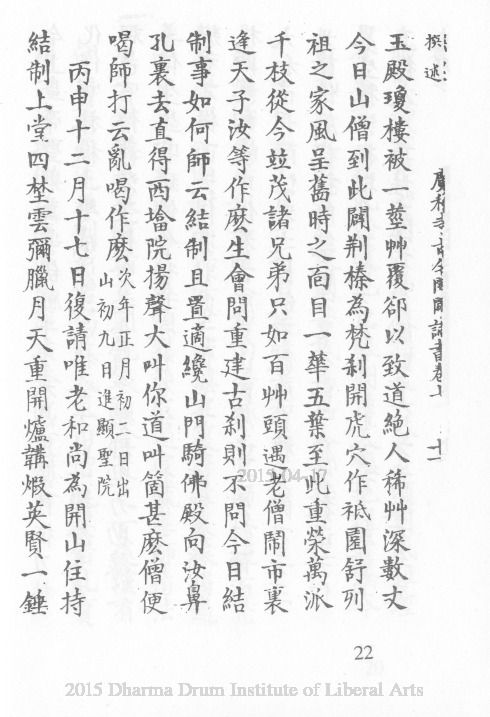 撰述
玉殿瓊樓被一莖艸覆郤以致道絕人稀艸深數丈
今日山僧到此闢荆榛為梵刹開虎穴作祇園舒列
祖之家風呈舊時之面目一華五葉至此重榮萬派
千枝從今並茂諸兄弟只如百艸頭邊老僧鬧市裏
逢天子汝等作麼生會問重建古刹則不問今日結
制事如何師云結制且置適纔山門騎佛殿向汝鼻
孔裏去直得西墖院揚聲大叫你道叫箇甚麼僧便
喝師打云亂喝作麼次年正月初二日出
山初九日進顯聖院
丙申十二月十七日復請唯老和尚為開山住持
結制上堂四埜雲彌臘月天重開爐鞲煅英賢一錘
2015-04-17
22
2015 Dharma Drum Institute of Liberal Arts